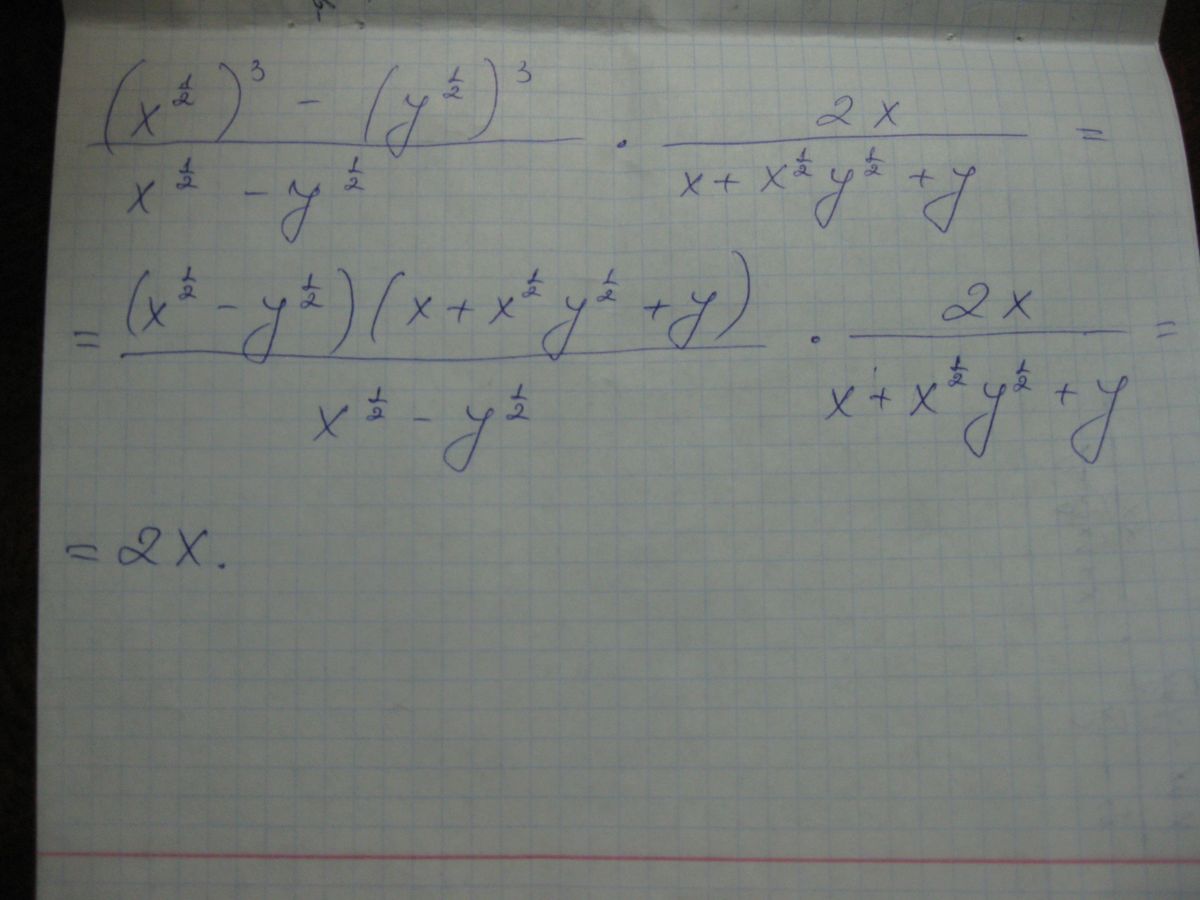 \frac{(x^{\frac{1}{2}})^3 - (y^{\frac{1}{2}})^3}{x^{\frac{1}{2}} - y^{\frac{1}{2}}} \cdot \frac{2x}{x + x^{\frac{1}{2}} y^{\frac{1}{2}} + y} =
= \frac{(x^{\frac{1}{2}} - y^{\frac{1}{2}})(x + x^{\frac{1}{2}} y^{\frac{1}{2}} + y)}{x^{\frac{1}{2}} - y^{\frac{1}{2}}} \cdot \frac{2x}{x + x^{\frac{1}{2}} y^{\frac{1}{2}} + y} =
= 2x.